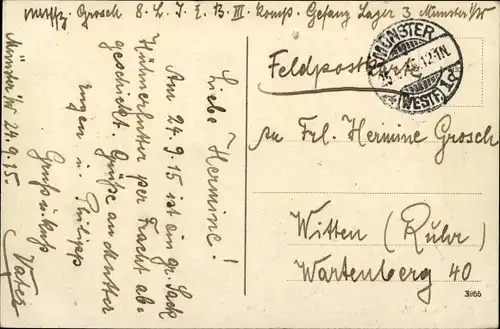 Grosch 8. L. J. E. B. III. Komp. Gefang Lager 3. Münster i/W
Münster i/W 24.9.15.
Liebe Hermine!
Am 24.9.15 ist ein gr. Sack
Hühnerfutter per Fracht ab-
geschickt. Grüße an Mutter
u. Philipp
Gruß u. Kuß
Vater
MÜNSTER
12-1N.
(WESTF.) 1c
Feldpostkarte
an Frl. Hermine Grosch
Witten (Ruhr)
Wartenberg 40
3966